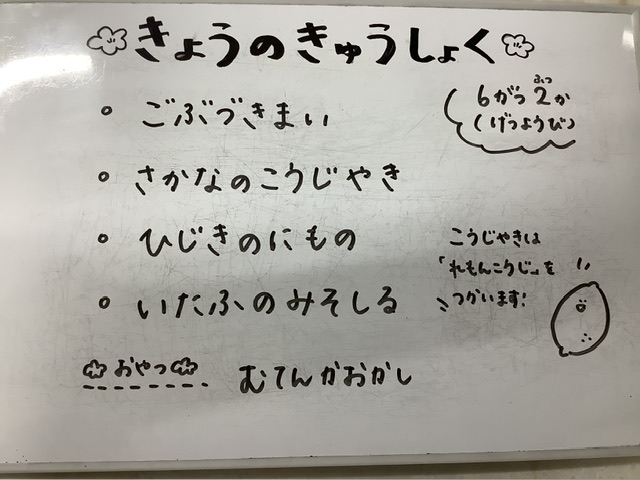 きょうのきゅうしょく
6がつ2か
ふつ
(げつようび)
• ごぶづきまい
• さかなのこうじやき
• ひじきのにもの
• いたふのみそしる
こうじやきは
「れもんこうじ」を
つかいます!
おやつ むてんかおかし